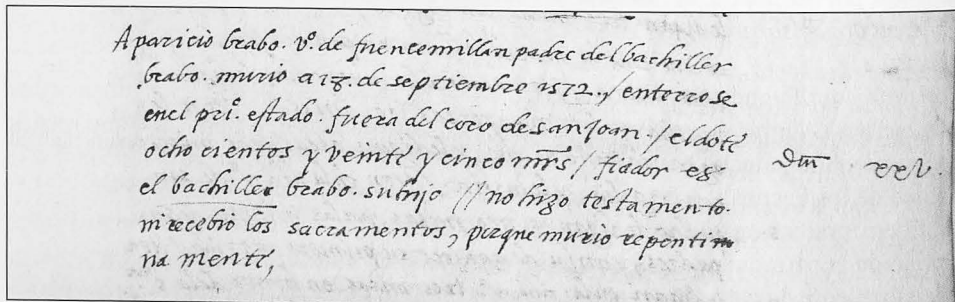 Aparicio brabo. vº. de fuencemillan padre del bachiller
brabo. murio a 18. de septiembre 1572./ enterrose
enel priº. estado. fuera del coro de san Joan ./ el dote
ocho cientos y veinte y cinco mrs / fiador es
el bachiller brabo. su hijo // no hizo testamento.
ni recebio los sacramentos, porque murio repentin
na mente,
xxv.